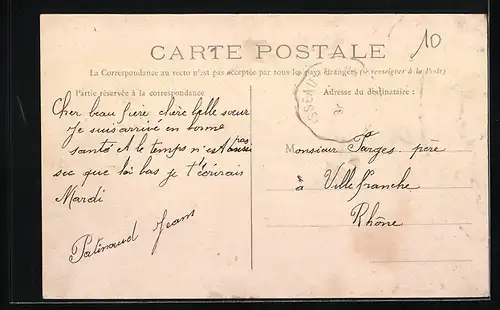 10
CARTE POSTALE
La Correspondance au recto n'est pas acceptée par tous les pays étrangers (se renseigner à la Poste)
Partie réservée à la correspondance
Adresse du destinataire :
Cher beau frère, chère belle sœur
Je suis arrivé en bonne
santé et le temps n'est pas aussi
sec que là bas je t'écrirais
Mardi
Patinaud Jeans
Monsieur Farges père
à Villefranche
Rhône